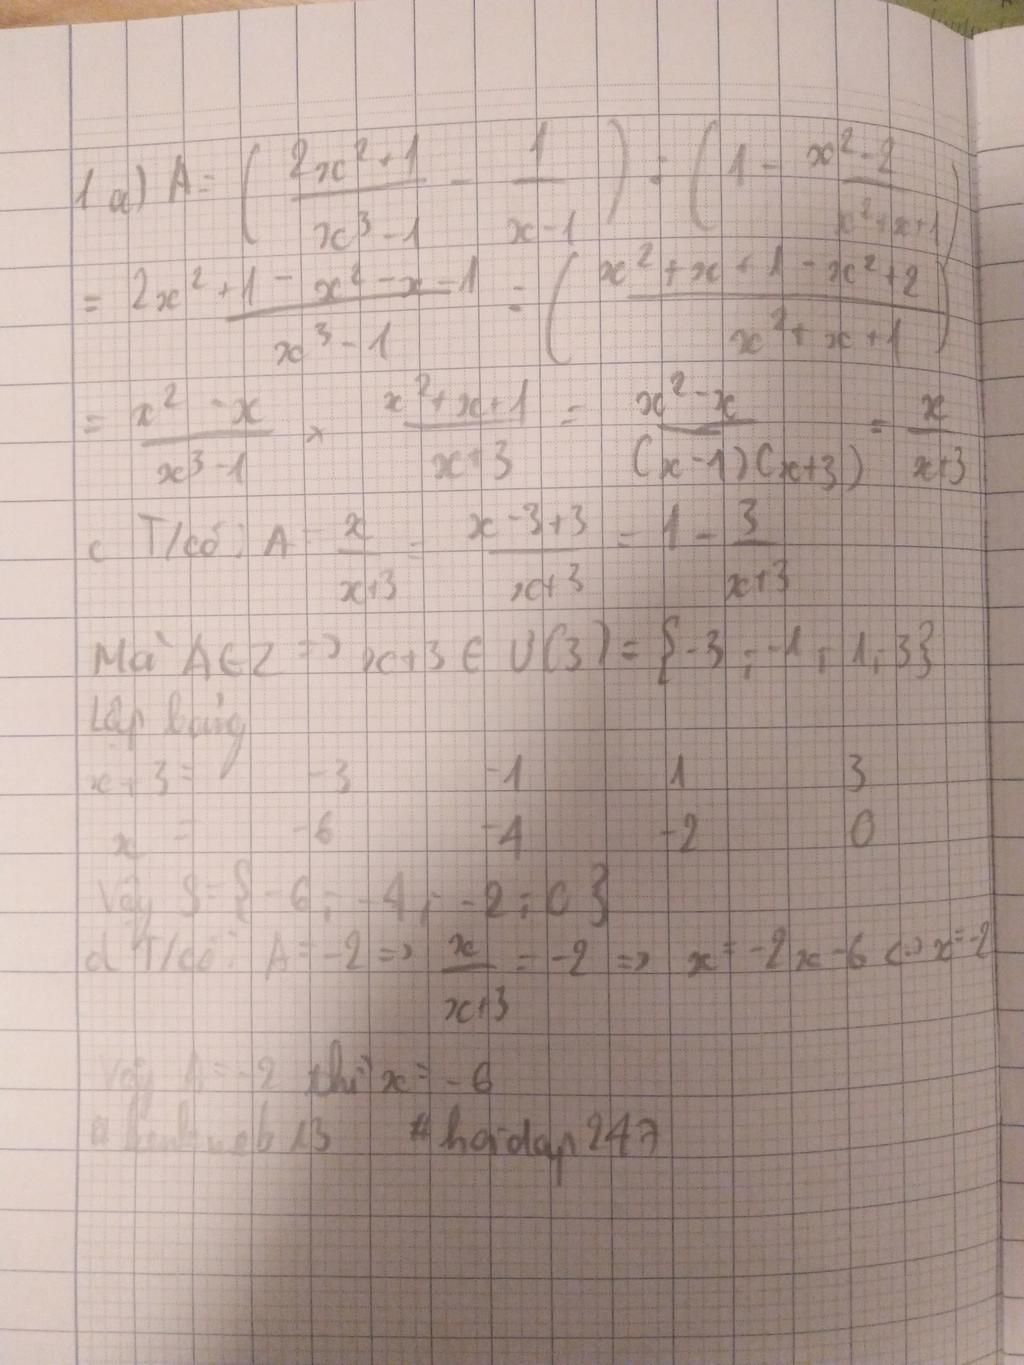 1 a) A = ( (2x²+1)/(x³-1) - 1/(x-1) ) : ( 1 - (x²-2)/(x²+x+1) )
= (2x²+1-x²-x-1)/(x³-1) : ( (x²+x+1-x²+2)/(x²+x+1) )
= (x²-x)/(x³-1) × (x²+x+1)/(x+3) = (x²-x)/((x-1)(x+3)) = x/(x+3)
c T/có: A = x/(x+3) = (x-3+3)/(x+3) = 1 - 3/(x+3)
Mà A∈Z => x+3 ∈ Ư(3) = {-3; -1; 1; 3}
Lập bảng
x+3 = -3 -1 1 3
x = -6 -4 -2 0
Vậy S={-6; -4; -2; 0}
d T/có: A=-2 => x/(x+3) = -2 => x = -2x-6 <=> x=-2
Vậy A=-2 thì x=-6
#hoidap247